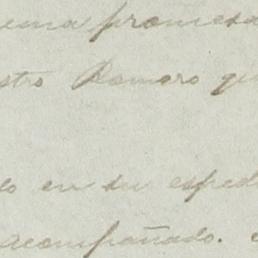 una promesa
stro Romero qu
lo en su exped
acompañado.